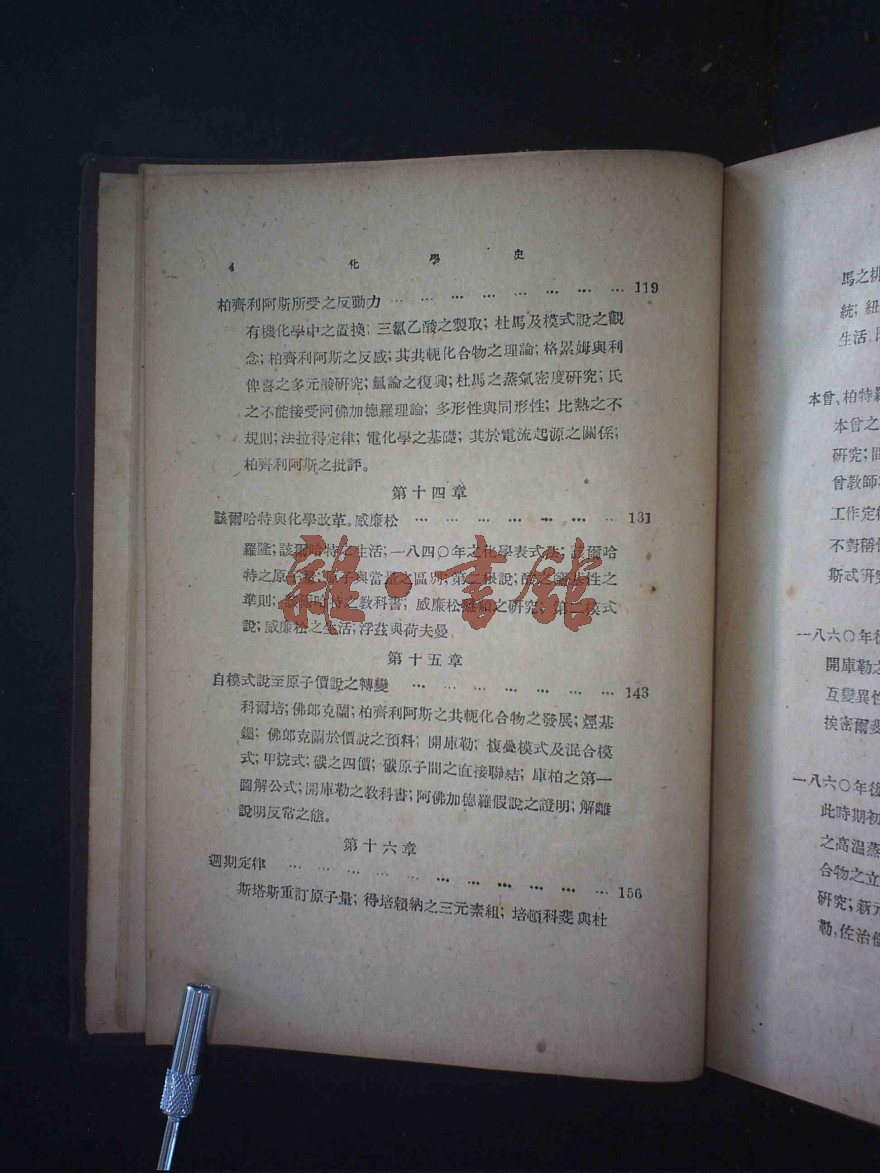 4 化學史
柏齊利阿斯所受之反動力 … … … … … … … … 119
有機化學中之置換; 三氯乙酸之製取; 杜馬及模式說之觀
念; 柏齊利阿斯之反感; 其共軛化合物之理論; 格累姆與利
俾喜之多元酸研究; 氫論之復興; 杜馬之蒸氣密度研究; 氏
之不能接受阿佛加德羅理論; 多形性與同形性; 比熱之不
規則; 法拉得定律; 電化學之基礎; 其於電流起源之關係;
柏齊利阿斯之批評。
第十四章
該爾哈特與化學改革。威廉松 … … … … … … … 131
羅隆; 該爾哈特之生活; 一八四〇年之化學表式法; 該爾哈
特之原子量; 原子與當量之區別; 第二根說; 酸之鹽基性之
準則; 該爾哈特之教科書; 威廉松醚類之研究; 第二模式
說; 威廉松之生活; 浮茲與荷夫曼。
第十五章
自模式說至原子價說之轉變 … … … … … … … 143
科爾培; 佛郎克蘭; 柏齊利阿斯之共軛化合物之發展; 烴基
; 佛郎克蘭於價說之預料; 開庫勒; 複疊模式及混合模
式; 甲烷式; 碳之四價; 碳原子間之直接聯結; 庫柏之第一
圖解公式; 開庫勒之教科書; 阿佛加德羅假說之證明; 解離
說明反常之態。
第十六章
週期定律 … … … … … … … … … … … 156
斯塔斯重訂原子量; 得培賴納之三元素組; 培頓科斐與杜
馬之排
統; 紐
生活,
本曾、柏特羅
本曾之
研究;
曾教師
工作定
不對稱
斯忒研究
一八六〇年後
開庫勒之
互變異性
挨密爾斐
一八六〇年後
此時期初
之高溫蒸
合物之立
研究; 新元
勒, 佐治
雜·書館